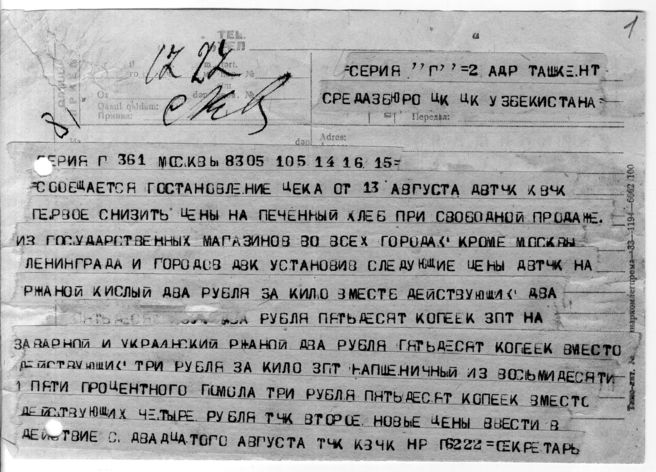 1
TEL.
12 22
=СЕРИЯ "Г"=2 АДР ТАШКЕНТ
СРЕДАЗБЮРО ЦК ЦК УЗБЕКИСТАНА=
Приняв:
Передал:
Adres:
СЕРИЯ Г 361 МОСКВЫ 8305 105 14 16 15=
=СООБЩАЕТСЯ ПОСТАНОВЛЕНИЕ ЦЕКА ОТ 13 АВГУСТА ДВТЧК КВЧК
ПЕРВОЕ СНИЗИТЬ ЦЕНЫ НА ПЕЧЕННЫЙ ХЛЕБ ПРИ СВОБОДНОЙ ПРОДАЖЕ.
ИЗ ГОСУДАРСТВЕННЫХ МАГАЗИНОВ ВО ВСЕХ ГОРОДАХ КРОМЕ МОСКВЫ
ЛЕНИНГРАДА И ГОРОДОВ ДВК УСТАНОВИВ СЛЕДУЮЩИЕ ЦЕНЫ ДВТЧК НА
РЖАНОЙ КИСЛЫЙ ДВА РУБЛЯ ЗА КИЛО ВМЕСТЕ ДЕЙСТВУЮЩИХ ДВА
ДВА РУБЛЯ ПЯТЬДЕСЯТ КОПЕЕК ЗПТ НА
ЗАВАРНОЙ И УКРАИНСКИЙ РЖАНОЙ ДВА РУБЛЯ ПЯТЬДЕСЯТ КОПЕЕК ВМЕСТО
ДЕЙСТВУЮЩИХ ТРИ РУБЛЯ ЗА КИЛО ЗПТ НАПШЕНИЧНЫЙ ИЗ ВОСЬМИДЕСЯТИ
ПЯТИ ПРОЦЕНТНОГО ПОМОЛА ТРИ РУБЛЯ ПЯТЬДЕСЯТ КОПЕЕК ВМЕСТО
ДЕЙСТВУЮЩИХ ЧЕТЫРЕ РУБЛЯ ТЧК ВТОРОЕ НОВЫЕ ЦЕНЫ ВВЕСТИ В
ДЕЙСТВИЕ С ДВАДЦАТОГО АВГУСТА ТЧК КВЧК НР П6222=СЕКРЕТАРЬ